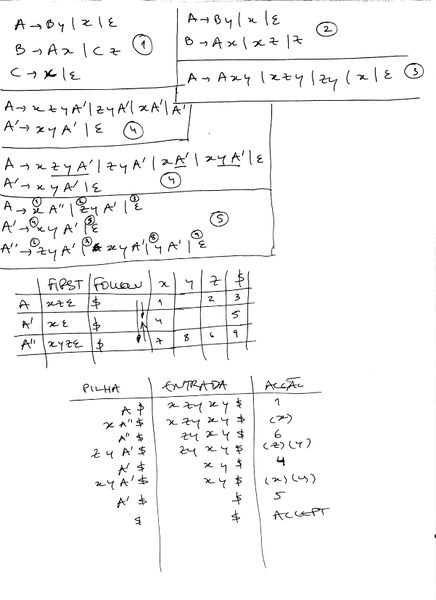 A → By | x | ε
B → Ax | Cz ①
C → x | ε
A → By | x | ε ②
B → Ax | xz | z
A → Axy | xzy | zy | x | ε ③
A → xzyA' | zyA' | xA' | A'
A' → xyA' | ε ④
A → xzyA' | zyA' | xA' | xyA' | ε
A' → xyA' | ε ④
A → ① xA'' | ② zyA' | ③ ε
A' → ④ xyA' | ⑤ ε ⑤
A'' → ⑥ zyA' | ⑦ xyA' | ⑧ yA' | ⑨ ε
FIRST FOLLOW x y z $
A xzε $ 1 2 3
A' xε $ 4 5
A'' xyzε $ 7 8 6 9
PILHA ENTRADA ACÇÃO
A$ xzyxy$ 1
xA''$ xzyxy$ (x)
A''$ zyxy$ 6
zyA'$ zyxy$ (z)(y)
A'$ xy$ 4
xyA'$ xy$ (x)(y)
A'$ $ 5
$ $ ACCEPT